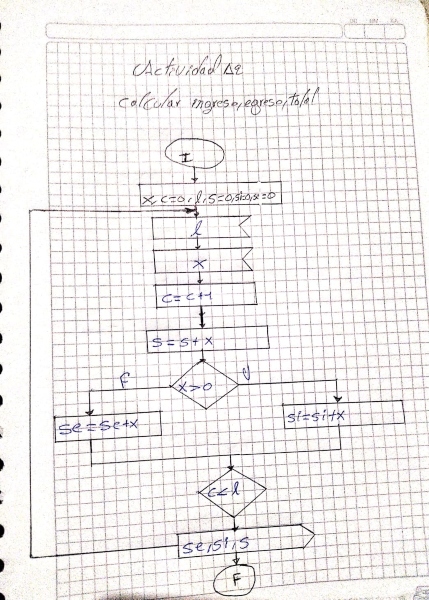 Actividad
calcular ingreso, egreso, total
I
x, c=0, l, s=0, si=0, se=0
l
x
c=c+1
s=s+x
F
x>0
V
se=se+x
si=si+x
c<l
se, si, s
F